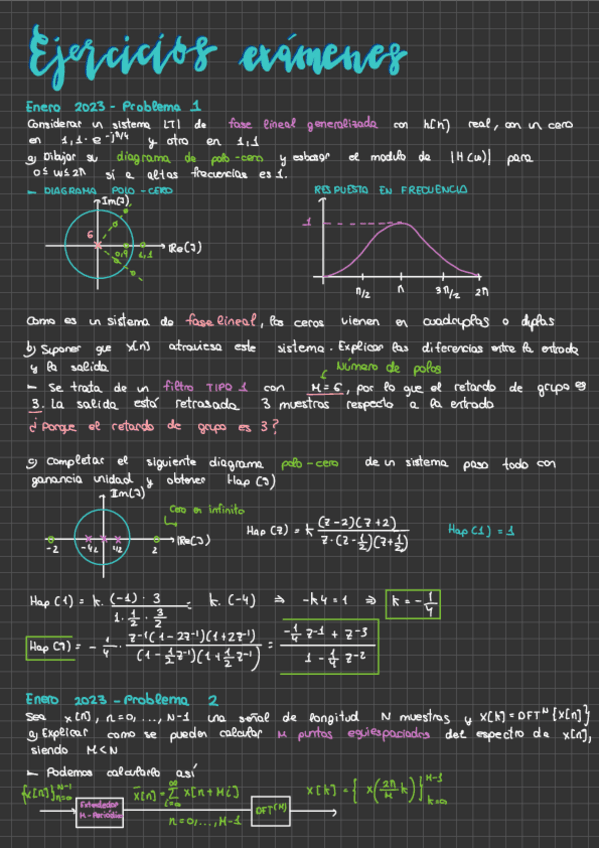 Ejercicios exámenes
Enero 2023 - Problema 1
Considerar un sistema LTI de fase lineal generalizada con h[n] real, con un cero
en 1,1·e^-jπ/4 y otro en 1,1
a) Dibujar su diagrama de polo-cero y esbozar el modulo de |H(ω)| para
0≤ω≤2π si a altas frecuencias es 1.
- DIAGRAMA POLO-CERO
RESPUESTA EN FRECUENCIA
Im(z)
6
0,9
1,1
Re(z)
1
π/2
π
3π/2
2π
Como es un sistema de fase lineal, los ceros vienen en cuadruplas o duplas
b) Suponer que x[n] atraviesa este sistema. Explicar las diferencias entre la entrada
y la salida
Número de polos
- Se trata de un filtro TIPO 1 con M=6, por lo que el retardo de grupo es
3. La salida está retrasada 3 muestras respecto a la entrada
¿Porque el retardo de grupo es 3?
c) Completar el siguiente diagrama polo-cero de un sistema paso todo con
ganancia unidad y obtener Hap(z)
Im(z)
Cero en infinito
-2
-1/2
1/2
2
Re(z)
Hap(z) = k (z-2)(z+2) / z·(z-1/2)(z+1/2)
Hap(1) = 1
Hap(1) = k. (-1)·3 / 1·1/2·3/2 = k. (-4) ⇒ -k4=1 ⇒ k=-1/4
Hap(z) = -1/4 · z^-1(1-2z^-1)(1+2z^-1) / (1-1/2z^-1)(1+1/2z^-1) = -1/4 z^-1 + z^-3 / 1-1/4 z^-2
Enero 2023 - Problema 2
Sea x[n], n=0,...,N-1 una señal de longitud N muestras y X[k]=DFT^N{x[n]}
a) Explicar como se pueden calcular M puntos equiespaciados del espectro de x[n],
siendo M<N
- Podemos calcularlo así
{x[n]}^N-1 n=0
x̄[n] = ∞∑i=∞ x[n+Mi]
X[k] = {X(2π/M k)}^M-1 k=0
Extendedor
M-Periódico
n=0,...,M-1
DFT(M)